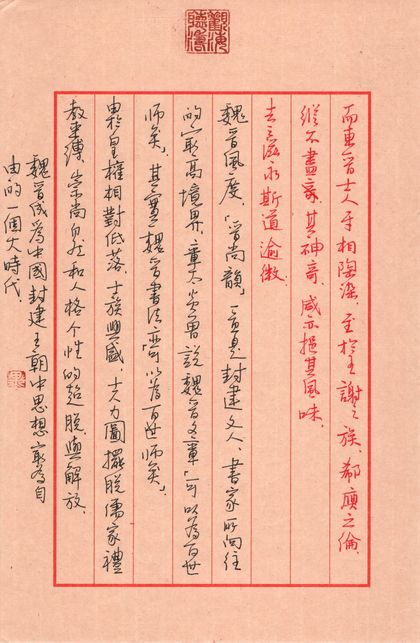 觀海聽濤
而東晉士人互相陶染，至於王謝之族，郗庾之倫，
縱不盡其神奇，咸亦挹其風味。
去之滋永斯道逾微。
魏晉風度、「晉尚韻」，一直是封建文人、書家所向往
的最高境界，章太炎曾說魏晉文章「可以為百世
師矣」，其實魏晉書法亦「可以為百世師矣」。
由於皇權相對低落，士族興盛，士人力圖擺脫儒家禮
教束縛，崇尚自然和人格个性的超脫與解放。
魏晉成為中國封建王朝中思想最為自
由的一個大時代。